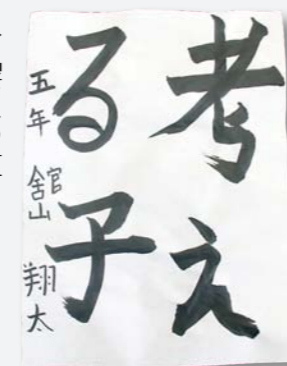 考え
る子
五年 舘山 翔太